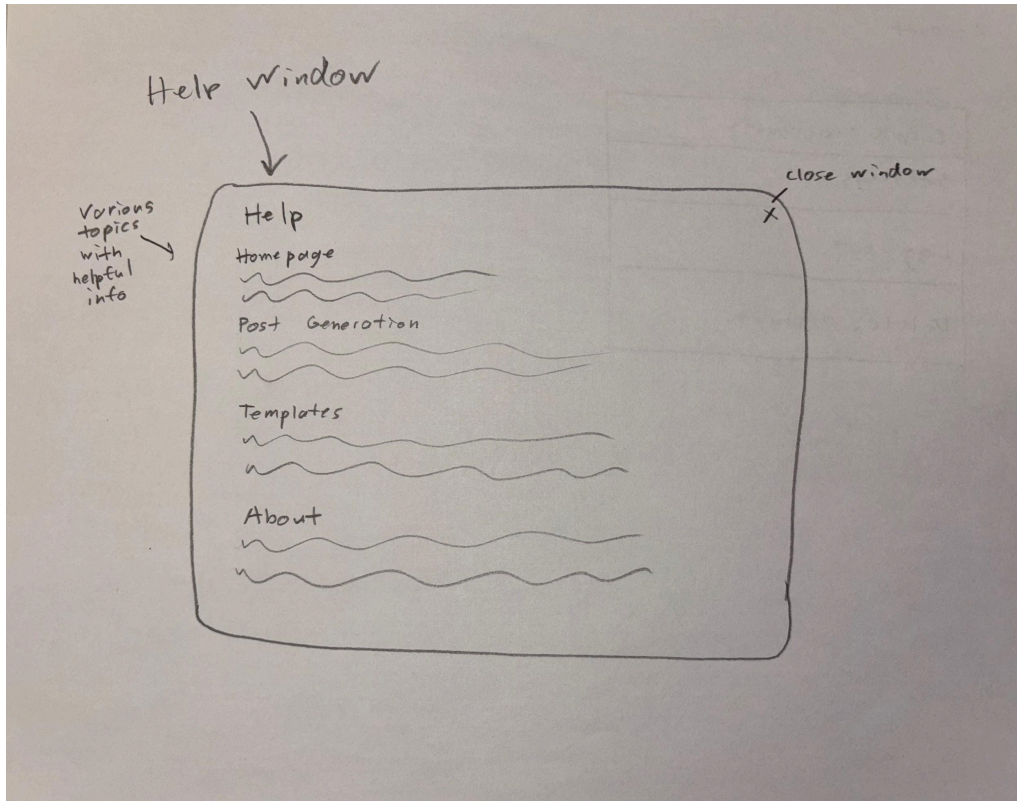 Help Window
close window
Various
topics
with
helpful
info
Help
x
Homepage
Post Generation
Templates
About